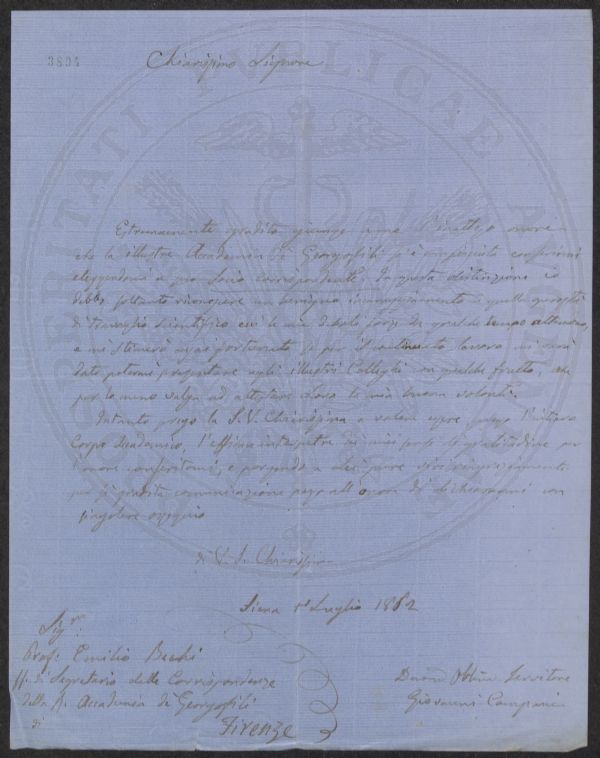 3834
Chiarissimo Signore
Estremamente gradito giunge a me l'inatteso onore
che la illustre Accademia de' Georgofili si è compiaciuta conferirmi
eleggendomi a suo socio corrispondente. In questa distinzione io
debbo soltanto riconoscere un benigno incoraggiamento a quella
di scientifico cui le mie deboli forze da qualche tempo
e mi stimerò assai fortunato se per il continuato lavoro mi sarà
dato potermi presentare agli illustri Colleghi con qualche frutto, che
per lo meno valga ad attestare loro la mia buona volontà.
Intanto prego la S. V. Chiarissima a volere essere presso l'intiero
Corpo Accademico, l'esimio interpetre dei miei sensi di gratitudine per
l'onore conferitomi, e porgendo a Lei pure
per la gradita comunicazione passo all'onore di dichiararmi con
singolare ossequio
di V. S. Chiarissima
Siena 1° Luglio 1862
Sig.
Prof. Emilio Bechi
ff. di Segretario delle Corrispondenze
della R. Accademia de' Georgofili
di Firenze
Servitore
Giovanni Campani